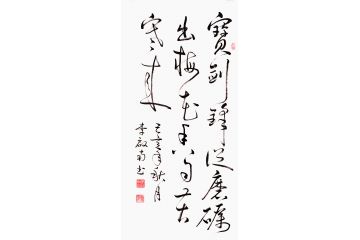 寶劍鋒從磨礪
出梅花香自苦
寒來
己亥年秋月
李啟南书